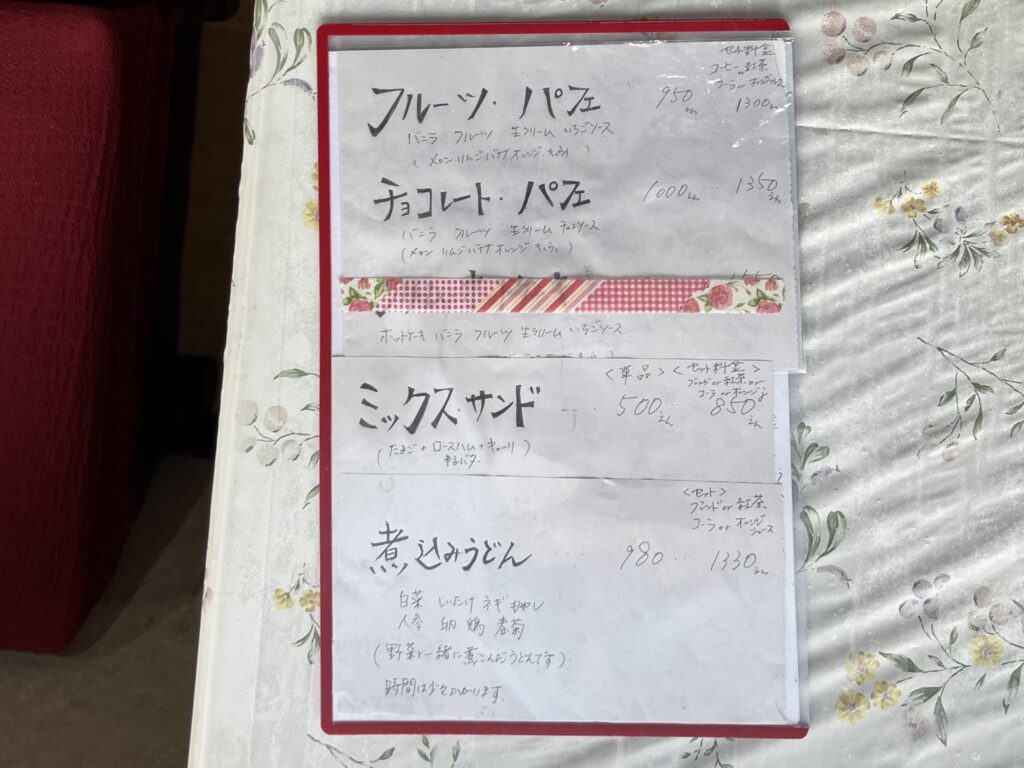 セット料金
コーヒー or 紅茶
コーラ or オレンジジュース
フルーツ・パフェ 950えん 1300えん
バニラ フルーツ 生クリーム いちごソース
(メロン・リンゴ バナナ オレンジ・キゥイ)
チョコレート・パフェ 1000えん 1350えん
バニラ フルーツ 生クリーム チョコソース
(メロン・リンゴ バナナ オレンジ キゥイ)
ホットケーキ バニラ フルーツ 生クリーム いちごソース
<単品> <セット料金>
ブレンド or 紅茶 or
コーラ or オレンジ
ミックス・サンド 500えん 850えん
(たまご + ロースハム + キューリ)
辛子バター
<セット>
ブレンド or 紅茶
コーラ or オレンジ
ジュース
煮込みうどん 980 1330えん
白菜 しいたけ ネギ もやし
人参 卵 鶏 春菊
(野菜と一緒に煮こんだうどんです)
時間は少々かかります。